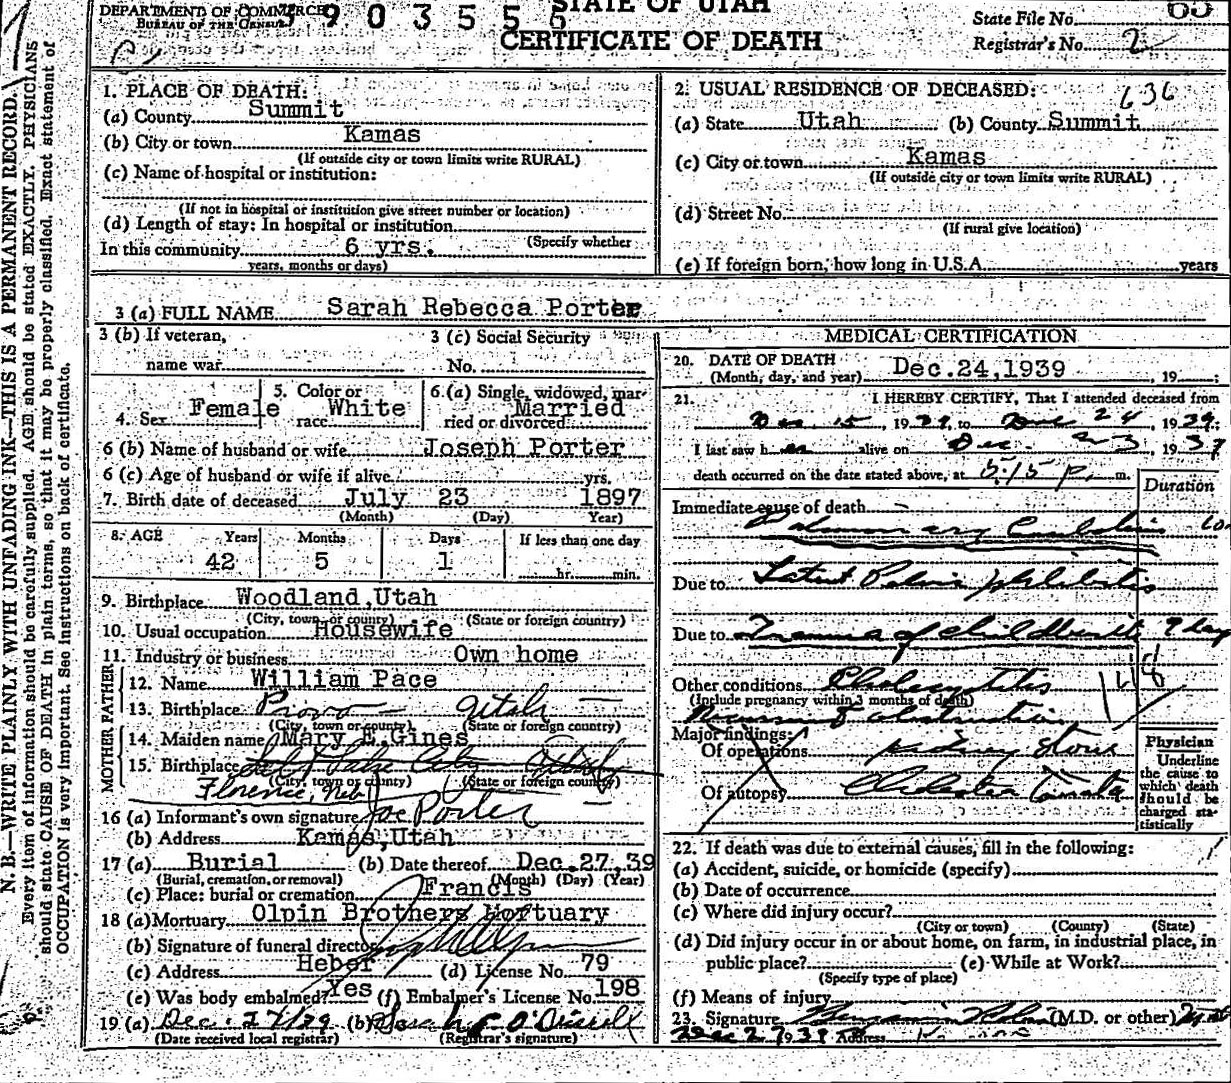 DEPARTMENT OF COMMERCE
BUREAU OF THE CENSUS
3903556
STATE OF UTAH
CERTIFICATE OF DEATH
State File No. 65
Registrar's No. 2
N. B.—WRITE PLAINLY WITH UNFADING INK—THIS IS A PERMANENT RECORD.
Every item of information should be carefully supplied. AGE should be stated EXACTLY. PHYSICIANS
should state CAUSE OF DEATH in plain terms, so that it may be properly classified. Exact statement of
OCCUPATION is very important. See instructions on back of certificate.
1. PLACE OF DEATH:
(a) County Summit
(b) City or town Kamas
(If outside city or town limits write RURAL)
(c) Name of hospital or institution:
(If not in hospital or institution give street number or location)
(d) Length of stay: In hospital or institution
(Specify whether
In this community 6 yrs.
years, months or days)
2. USUAL RESIDENCE OF DECEASED:
636
(a) State Utah (b) County Summit
(c) City or town Kamas
(If outside city or town limits write RURAL)
(d) Street No.
(If rural give location)
(e) If foreign born, how long in U.S.A. years
3 (a) FULL NAME Sarah Rebecca Porter
3 (b) If veteran, 3 (c) Social Security
name war No.
4. Sex Female 5. Color or race White 6.(a) Single, widowed, married or divorced Married
6 (b) Name of husband or wife Joseph Porter
6 (c) Age of husband or wife if alive yrs.
7. Birth date of deceased July 23 1897
(Month) (Day) Year)
8. AGE Years Months Days If less than one day
42 5 1 hr. min.
9. Birthplace Woodland,Utah
(City, town, or county) (State or foreign country)
10. Usual occupation Housewife
11. Industry or business Own home
FATHER
12. Name William Pace
13. Birthplace Provo Utah
(City, town or county) (State or foreign country)
MOTHER
14. Maiden name Mary E. Gines
15. Birthplace Salt Lake City Utah
(City, town or county) (State or foreign country)
Florence, Neb
16 (a) Informant's own signature Joe Porter
(b) Address Kamas,Utah
17 (a) Burial (b) Date thereof Dec.27,39
(Burial, cremation, or removal) (Month) (Day) (Year)
(c) Place: burial or cremation Francis
18 (a) Mortuary Olpin Brothers Mortuary
(b) Signature of funeral director
(c) Address Heber (d) License No. 79
(e) Was body embalmed? Yes (f) Embalmer's License No. 198
19 (a) Dec. 27/39 (b) Sarah O'Driscoll
(Date received local registrar) (Registrar's signature)
MEDICAL CERTIFICATION
20. DATE OF DEATH
(Month, day, and year) Dec.24,1939 , 19
21. I HEREBY CERTIFY, That I attended deceased from
Dec. 15, 1939, to Dec 24, 1939;
I last saw her alive on Dec. 23, 1939
death occurred on the date stated above, at 5:15 P. m.
Duration
Immediate cause of death
Pulmonary Embolism
Due to Latent Pelvic phlebitis
Due to Trauma of childbirth 9 day
Other conditions Cholecystitis
(Include pregnancy within 3 months of death)
obstruction
Major findings:
Of operations Kidney Stone
Of autopsy
Physician
Underline
the cause to
which death
should be
charged sta-
tistically
22. If death was due to external causes, fill in the following:
(a) Accident, suicide, or homicide (specify)
(b) Date of occurrence
(c) Where did injury occur?
(City or town) (County) (State)
(d) Did injury occur in or about home, on farm, in industrial place, in
public place? (e) While at Work?
(Specify type of place)
(f) Means of injury
23. Signature Benjamin (M.D. or other)
Dec 27 1939 Address Kamas